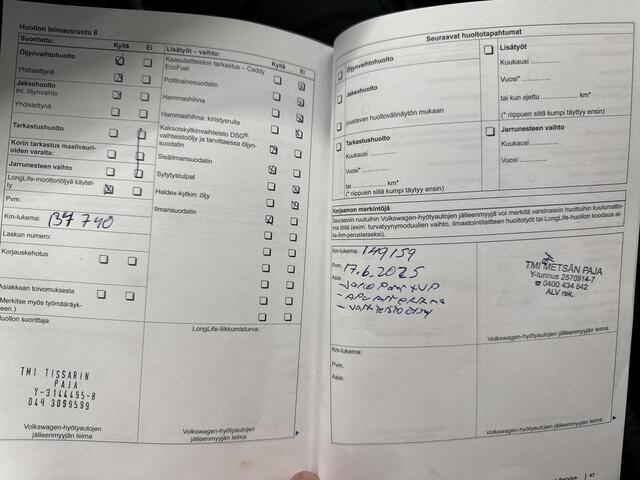 Huollon leimausruutu 8
Suoritettu:
Kyllä
Ei
Öljynvaihtohuolto
Yhdistettynä
Jaksohuolto
ml. öljynvaihto
Yhdistettynä
Tarkastushuolto
Korin tarkastus maalivauri-
oiden varalta:
Jarrunesteen vaihto
LongLife-moottoriöljyä käytet-
ty
Pvm.
Km-lukema:
Laskun numero:
Korjauskehotus
Asiakkaan toivomuksesta
Merkitse myös työmääräyk-
een.)
Huollon suorittaja:
TMI TISSARIN
PAJA
Y-3144495-8
044 3099599
Volkswagen-hyötyautojen
jälleenmyyjän leima
Lisätyöt – vaihto:
Kyllä
Ei
Kaasulaitteiston tarkastus – Caddy
EcoFuel
Polttoainesuodatin
Hammashihna
Hammashihna: kiristysrulla
Kaksoiskytkinvaihteisto DSG®:
vaihteistoöljy ja tarvittaessa öljyn-
suodatin
Sisäilmansuodatin
Sytytystulpat
Haldex-kytkin: öljy
Ilmansuodatin
LongLife-liikkumisturva:
Volkswagen-hyötyautojen
jälleenmyyjän leima
Seuraavat huoltotapahtumat
Öljynvaihtohuolto
Jaksohuolto
joustavan huoltovälinäytön mukaan
Tarkastushuolto
Kuukausi
Vuosi*
tai km*
(* riippuen siitä kumpi täytyy ensin)
Lisätyöt
Kuukausi
Vuosi*
tai kun ajettu km*
(* riippuen siitä kumpi täytyy ensin)
Jarrunesteen vaihto
Kuukausi
Vuosi
Korjaamon merkintöjä
Seuraaviin ruutuihin Volkswagen-hyötyautojen jälleenmyyjä voi merkitä varsinaisiin huoltoihin kuulumatto-
mia töitä (esim. turvatyynymoduulien vaihto, ilmastointilaitteen huoltotyöt tai LongLife-huollon koodaus ai-
ka-km-perusteiseksi).
Km-lukema: 149159
Pvm. 17.6.2025
Asia:
TMI METSÄN PAJA
Y-tunnus 2570914-7
☎ 0400 434 842
ALV rek.
Volkswagen-hyötyautojen jälleenmyyjän leima
Km-lukema:
Pvm.
Asia:
Volkswagen-hyötyautojen
jälleenmyyjän leima
Service 47